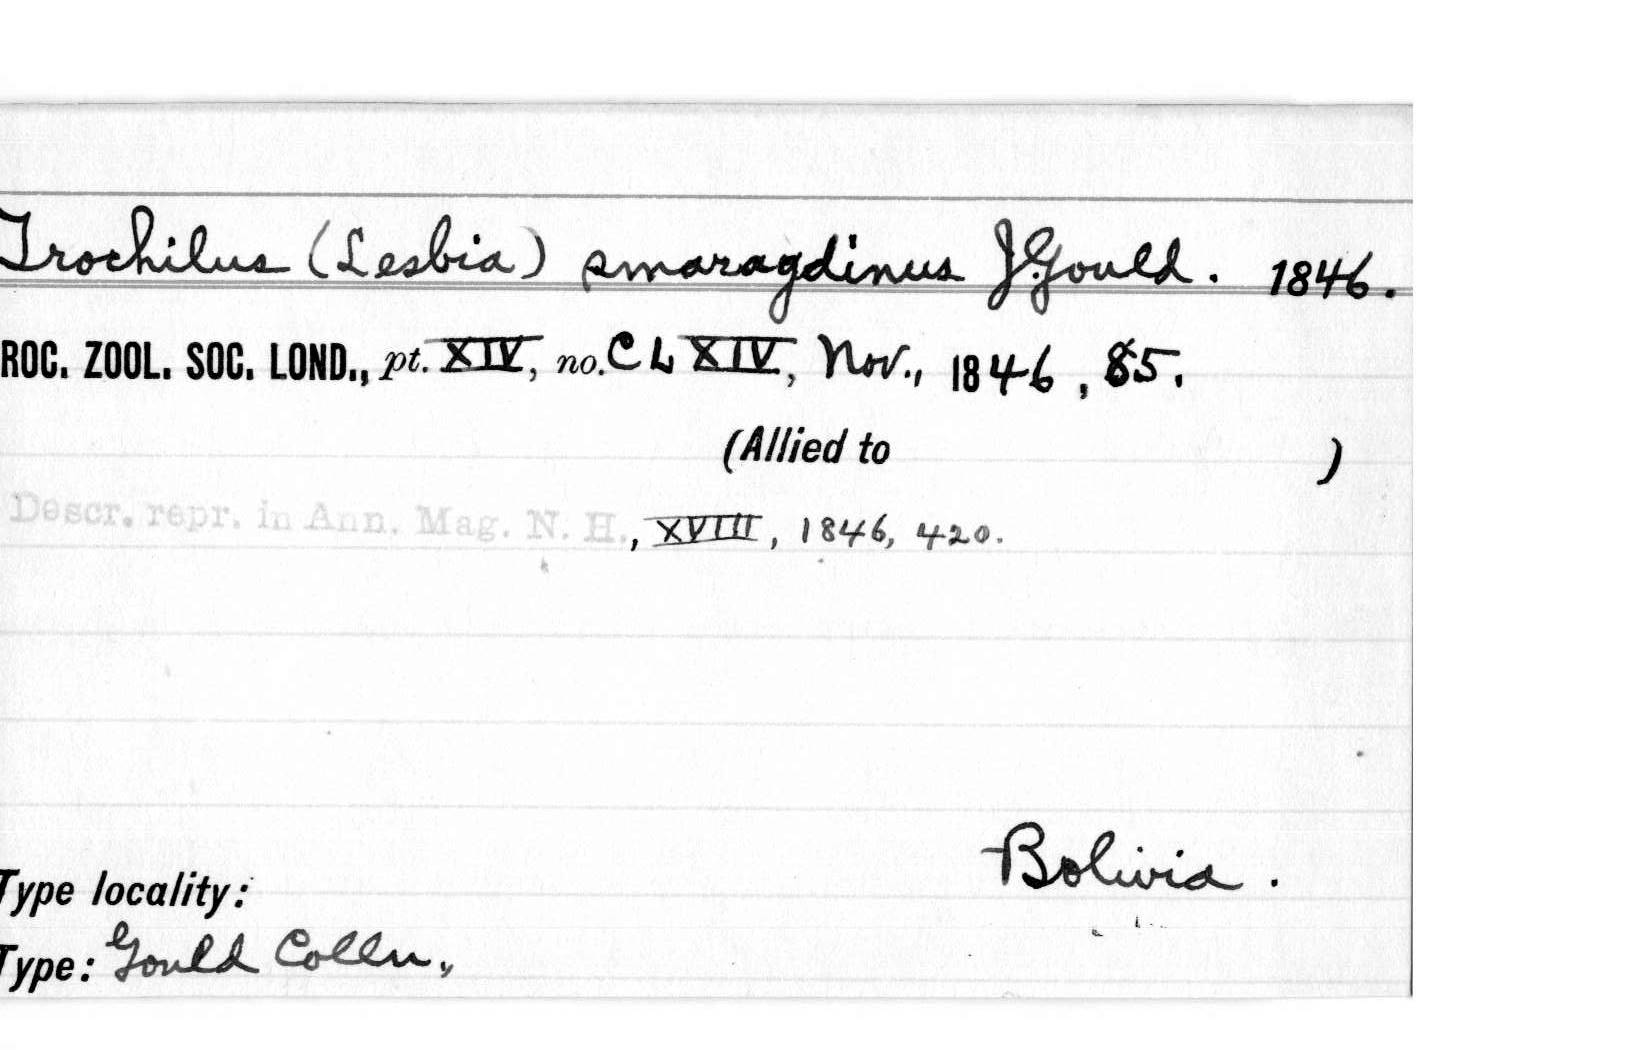 Trochilus (Lesbia) smaragdinus J. Gould. 1846.
ROC. ZOOL. SOC. LOND., pt. XIV, no. CLXIV, Nov., 1846, 85.
(Allied to )
Descr. repr. in Ann. Mag. N. H., XVIII, 1846, 420.
Bolivia.
Type locality:
Type: Gould Colln.,